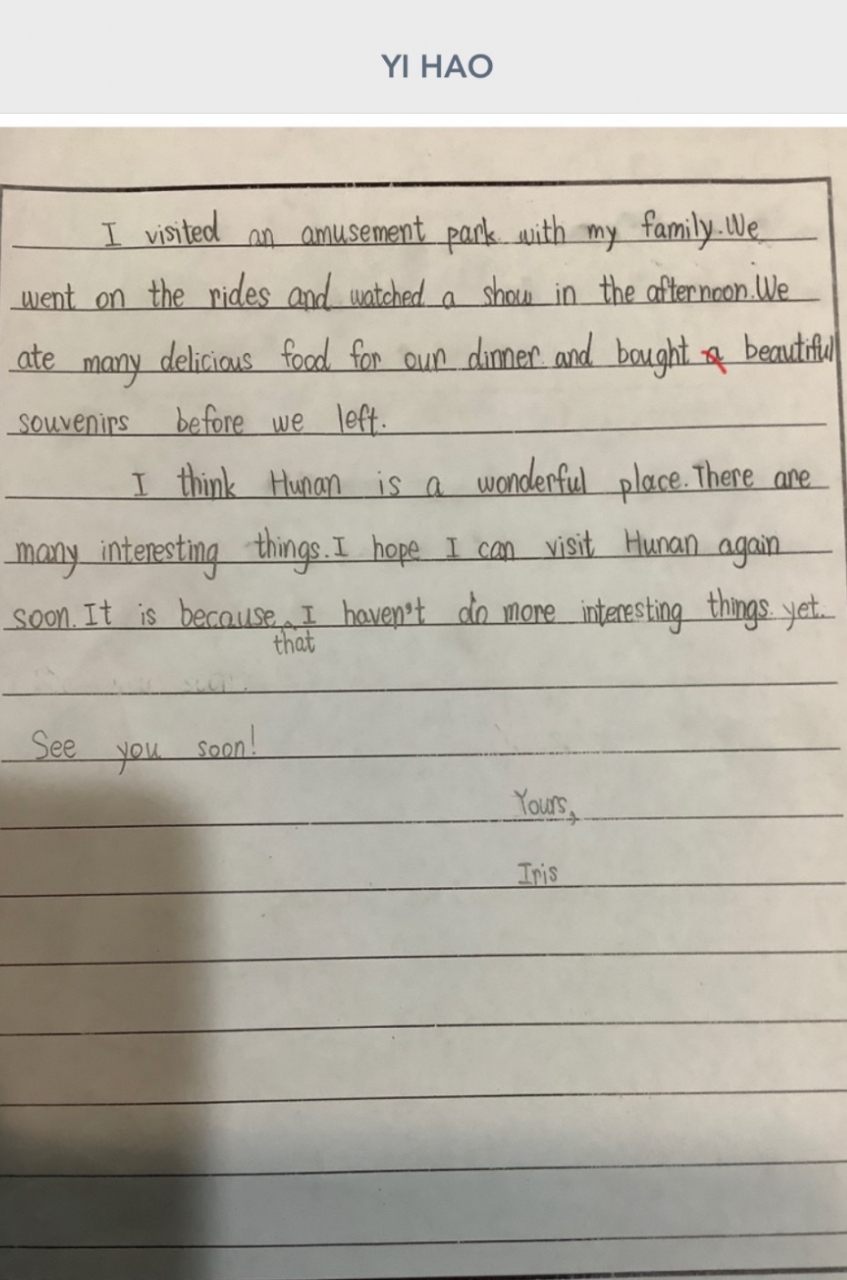 YI HAO
I visited an amusement park with my family. We
went on the rides and watched a show in the afternoon. We
ate many delicious food for our dinner and bought a beautiful
souvenirs before we left.
I think Hunan is a wonderful place. There are
many interesting things. I hope I can visit Hunan again
soon. It is because I haven't do more interesting things yet.
that
See you soon!
Yours,
Iris